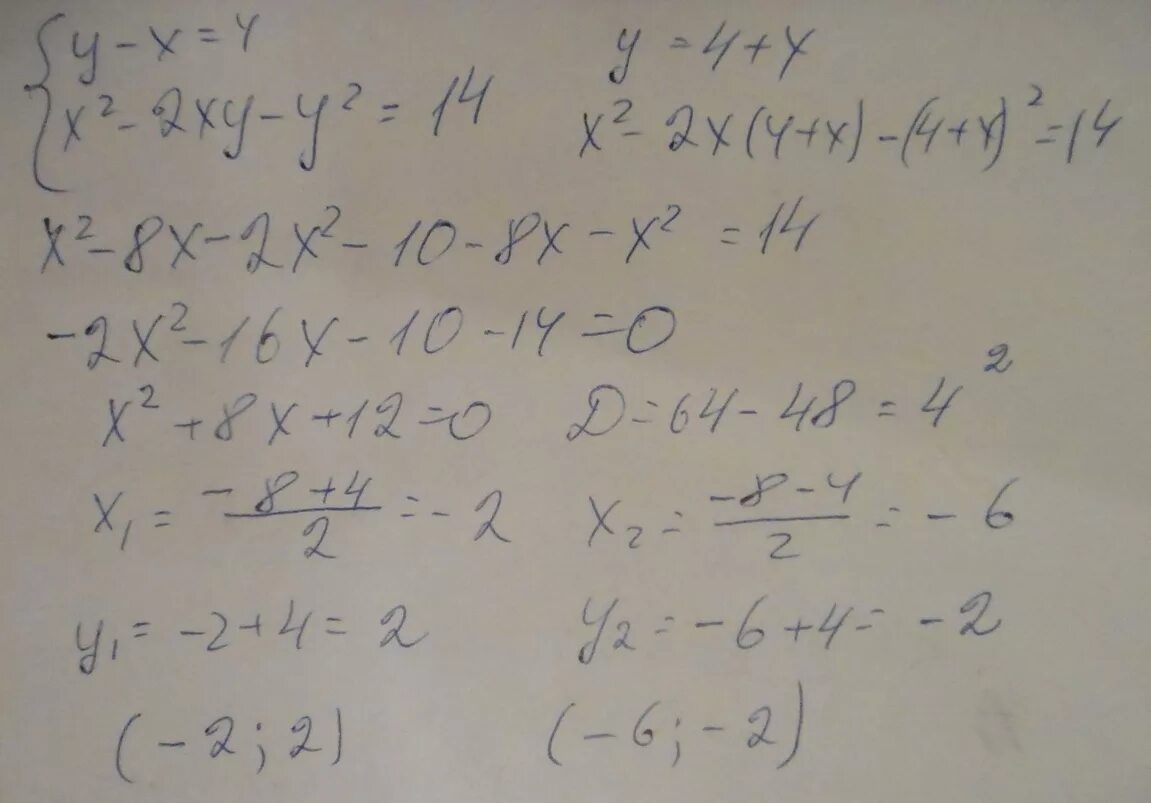 { y - x = 4
x² - 2xy - y² = 14
y = 4 + x
x² - 2x(4+x) - (4+x)² = 14
x² - 8x - 2x² - 10 - 8x - x² = 14
-2x² - 16x - 10 - 14 = 0
x² + 8x + 12 = 0 D = 64 - 48 = 4²
x₁ = (-8+4)/2 = -2 x₂ = (-8-4)/2 = -6
y₁ = -2+4 = 2 y₂ = -6+4 = -2
(-2; 2) (-6; -2)